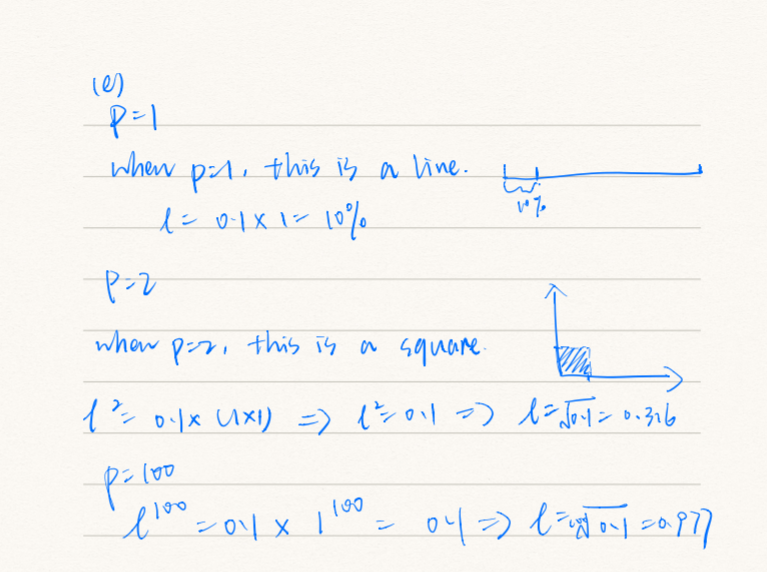 (e)
p=1
when p=1, this is a line.
10%
l = 0.1 × 1 = 10%
p=2
when p=2, this is a square.
l² = 0.1 × (1×1) ⇒ l² = 0.1 ⇒ l = √0.1 = 0.316
p=100
l¹⁰⁰ = 0.1 × 1¹⁰⁰ = 0.1 ⇒ l = ¹⁰⁰√0.1 = 0.977